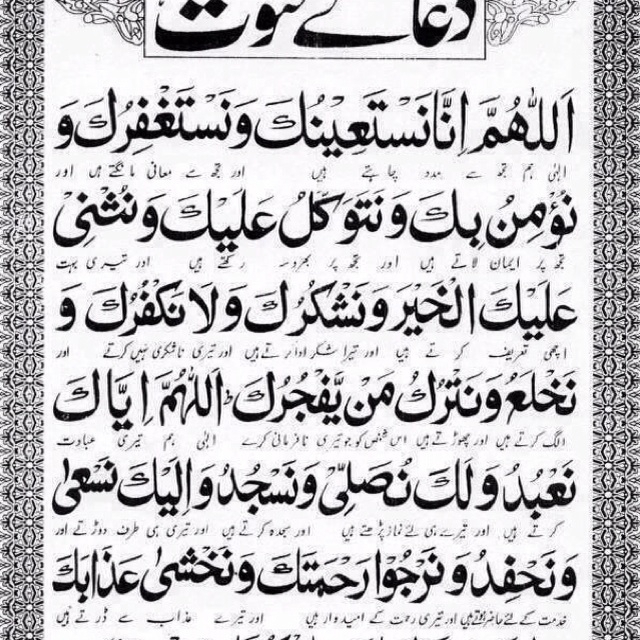 دعائے قنوت
اَللّٰهُمَّ اِنَّا نَسْتَعِيْنُكَ وَنَسْتَغْفِرُكَ وَ
الٰہی ہم تجھ سے مدد چاہتے ہیں اور تجھ سے معافی مانگتے ہیں اور
نُؤْمِنُ بِكَ وَنَتَوَكَّلُ عَلَيْكَ وَنُثْنِیْ
تجھ پر ایمان لاتے ہیں اور تجھ پر بھروسہ رکھتے ہیں اور تیری بہت
عَلَيْكَ الْخَيْرَ وَنَشْكُرُكَ وَلَا نَكْفُرُكَ وَ
اچھی تعریف کرتے ہیں اور تیرا شکر ادا کرتے ہیں اور تیری ناشکری نہیں کرتے اور
نَخْلَعُ وَنَتْرُكُ مَنْ يَّفْجُرُكَ اَللّٰهُمَّ اِيَّاكَ
الگ کرتے ہیں اور چھوڑتے ہیں اس شخص کو جو تیری نافرمانی کرے الٰہی ہم تیری عبادت
نَعْبُدُ وَلَكَ نُصَلِّیْ وَنَسْجُدُ وَاِلَيْكَ نَسْعٰی
کرتے ہیں اور تیرے ہی لئے نماز پڑھتے ہیں اور سجدہ کرتے ہیں اور تیری ہی طرف دوڑتے اور
وَنَحْفِدُ وَنَرْجُوْا رَحْمَتَكَ وَنَخْشٰی عَذَابَكَ
خدمت کے لئے حاضر ہوتے ہیں اور تیری رحمت کے امیدوار ہیں اور تیرے عذاب سے ڈرتے ہیں